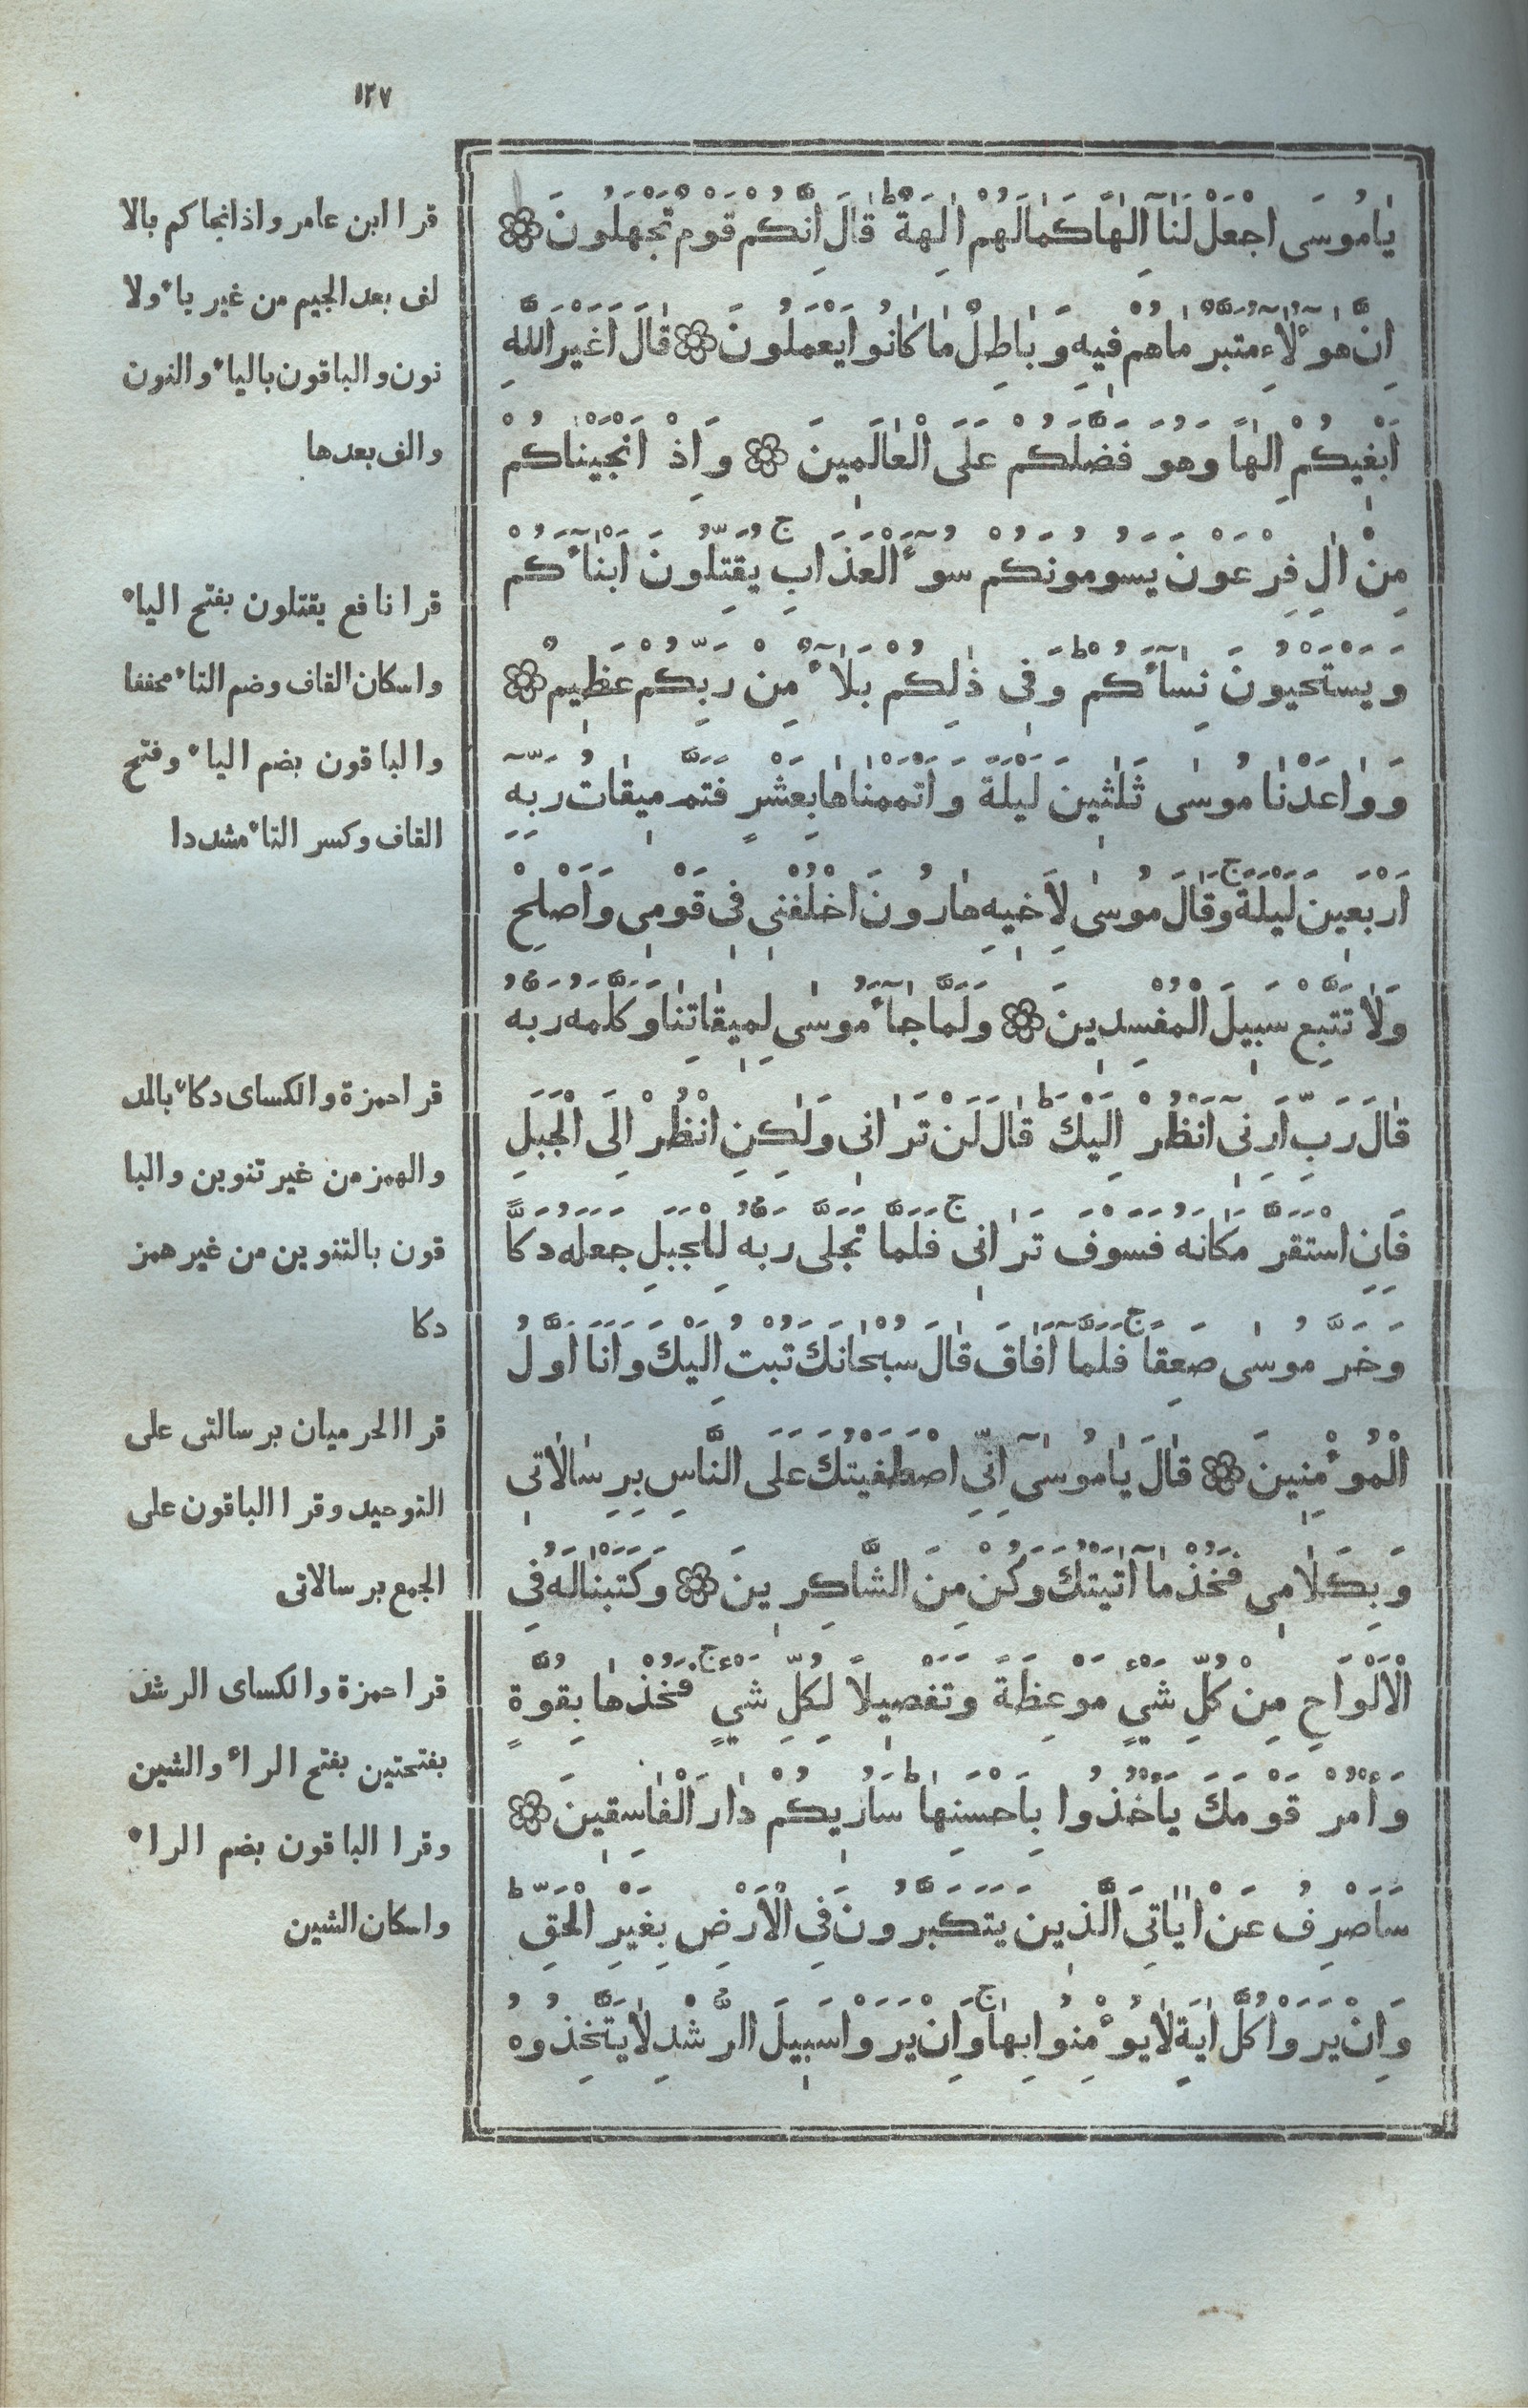 ١٢٧
يٰامُوسَى اجْعَلْ لَنٰٓا اِلٰهًا كَمٰا لَهُمْ اٰلِهَةٌ ط قٰالَ اِنَّكُمْ قَوْمٌ تَجْهَلُونَ ۞
اِنَّ هٰٓؤُلٰٓاءِ مُتَبَّرٌ مٰا هُمْ فِيهِ وَبٰاطِلٌ مٰا كٰانُوا يَعْمَلُونَ ۞ قٰالَ اَغَيْرَ اللّٰهِ
اَبْغِيكُمْ اِلٰهًا وَهُوَ فَضَّلَكُمْ عَلَى الْعٰالَمِينَ ۞ وَاِذْ اَنْجَيْنٰاكُمْ
مِنْ اٰلِ فِرْعَوْنَ يَسُومُونَكُمْ سُوٓءَ الْعَذَابِ ج يُقَتِّلُونَ اَبْنٰٓاءَكُمْ
وَيَسْتَحْيُونَ نِسٰٓاءَكُمْ ط وَفِى ذٰلِكُمْ بَلٰٓاءٌ مِنْ رَبِّكُمْ عَظِيمٌ ۞
وَوٰاعَدْنٰا مُوسٰى ثَلٰثِينَ لَيْلَةً وَاَتْمَمْنٰاهٰا بِعَشْرٍ فَتَمَّ مِيقٰاتُ رَبِّهِٓ
اَرْبَعِينَ لَيْلَةً ج وَقٰالَ مُوسٰى لِاَخِيهِ هٰارُونَ اخْلُفْنِى فِى قَوْمِى وَاَصْلِحْ
وَلٰا تَتَّبِعْ سَبِيلَ الْمُفْسِدِينَ ۞ وَلَمّٰا جٰٓاءَ مُوسٰى لِمِيقٰاتِنٰا وَكَلَّمَهُ رَبُّهُ
قٰالَ رَبِّ اَرِنِىٓ اَنْظُرْ اِلَيْكَ ط قٰالَ لَنْ تَرٰانِى وَلٰكِنِ انْظُرْ اِلَى الْجَبَلِ
فَاِنِ اسْتَقَرَّ مَكٰانَهُ فَسَوْفَ تَرٰانِى ج فَلَمَّا تَجَلَّى رَبُّهُ لِلْجَبَلِ جَعَلَهُ دَكًّا
وَخَرَّ مُوسٰى صَعِقًا ج فَلَمَّٓا اَفٰاقَ قٰالَ سُبْحٰانَكَ تُبْتُ اِلَيْكَ وَاَنَا اَوَّلُ
الْمُؤْمِنِينَ ۞ قٰالَ يٰامُوسٰٓى اِنِّى اصْطَفَيْتُكَ عَلَى النَّاسِ بِرِسٰالٰاتِى
وَبِكَلٰامِى فَخُذْ مٰٓا اٰتَيْتُكَ وَكُنْ مِنَ الشَّاكِرِينَ ۞ وَكَتَبْنٰا لَهُ فِى
الْاَلْوَاحِ مِنْ كُلِّ شَىْءٍ مَوْعِظَةً وَتَفْصِيلًا لِكُلِّ شَىْءٍ ج فَخُذْهٰا بِقُوَّةٍ
وَأْمُرْ قَوْمَكَ يَأْخُذُوا بِاَحْسَنِهٰا ط سَاُرِيكُمْ دٰارَ الْفٰاسِقِينَ ۞
سَاَصْرِفُ عَنْ اٰيٰاتِىَ الَّذِينَ يَتَكَبَّرُونَ فِى الْاَرْضِ بِغَيْرِ الْحَقِّ ط
وَاِنْ يَرَوْا كُلَّ اٰيَةٍ لٰا يُؤْمِنُوا بِهٰا ج وَاِنْ يَرَوْا سَبِيلَ الرُّشْدِ لٰا يَتَّخِذُوهُ
قرا ابن عامر واذ انجاكم بالا
لف بعد الجيم من غير ياء ولا
نون والباقون بالياء والنون
والف بعدها
قرا نافع يقتلون بفتح الياء
واسكان القاف وضم التاء مخففا
والباقون بضم الياء وفتح
القاف وكسر التاء مشددا
قرا حمزة والكساى دكاء بالمد
والهمز من غير تنوين والبا
قون بالتنوين من غير همز
دكا
قرا الحرميان برسالتى على
التوحيد وقرا الباقون على
الجمع برسالاتى
قرا حمزة والكساى الرشد
بفتحتين بفتح الراء والشين
وقرا الباقون بضم الراء
واسكان الشين